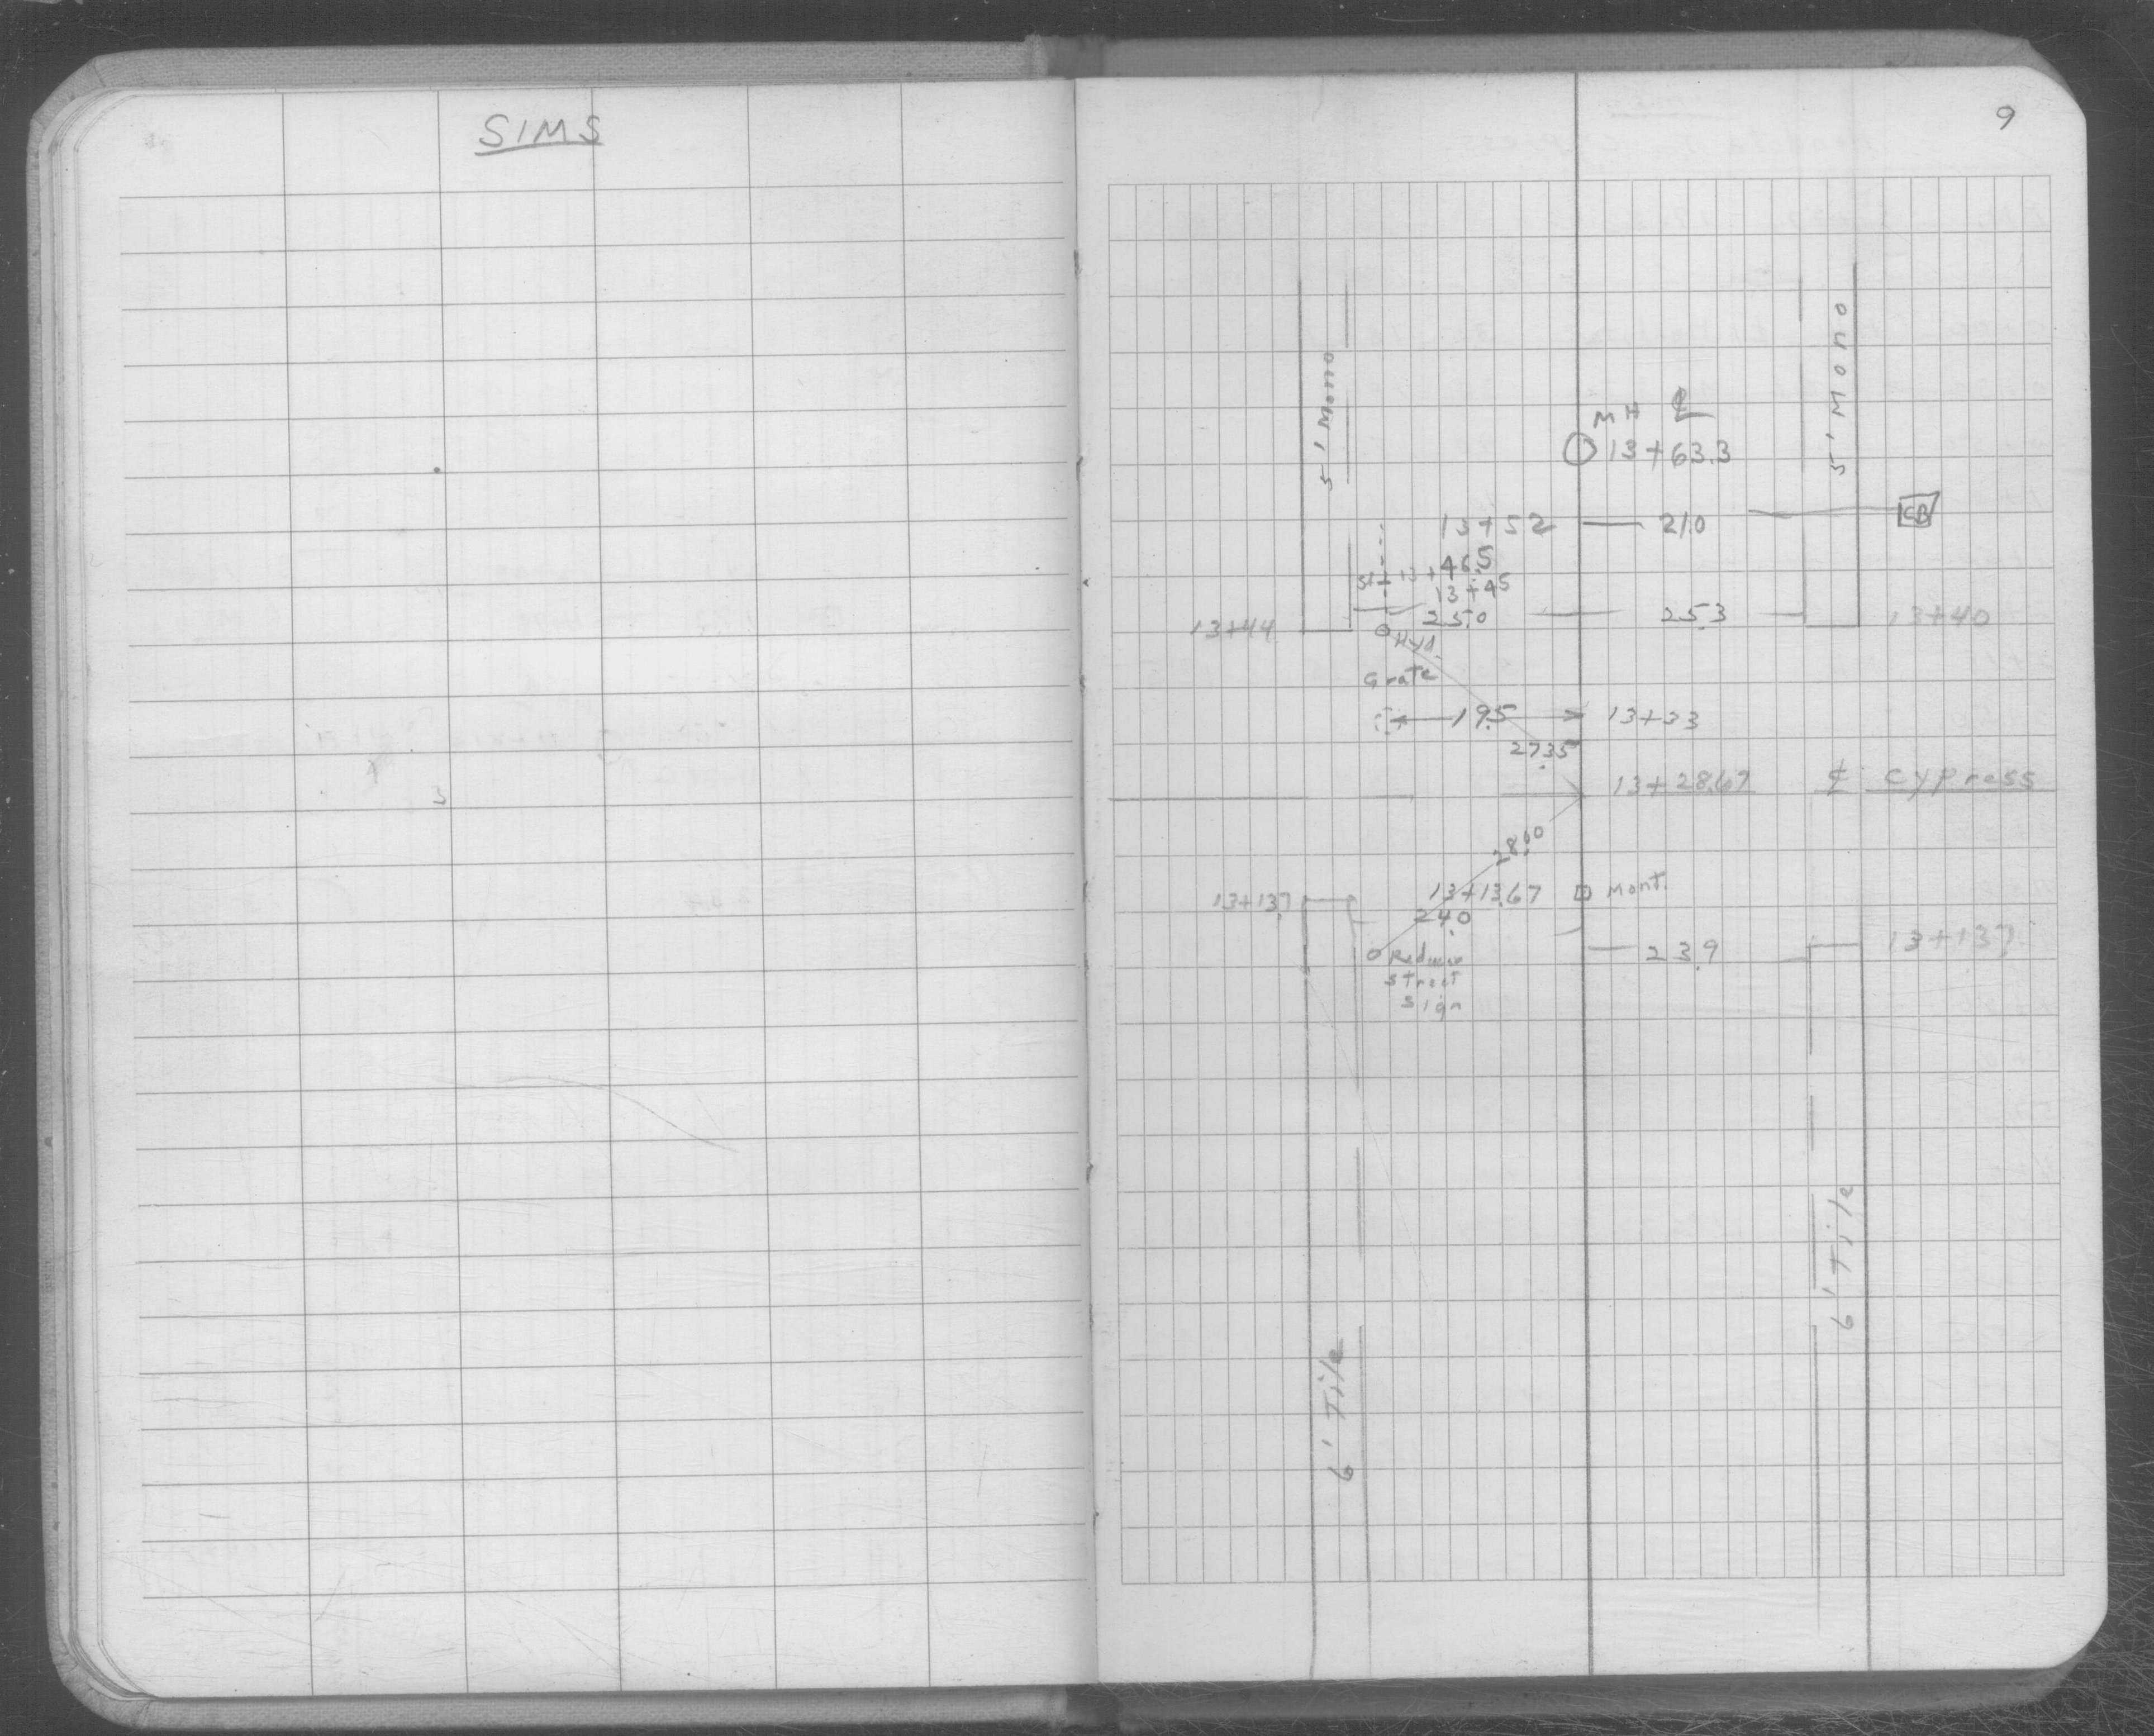 SIMS
9
5' Mono
5' Mono
MH ℄
13+63.3
13+52 — 21.0
CB
46.5
13+45
25.0 — 25.3
13+44
13+40
Hyd.
Grate
19.5 13+33
27.35
13+28.67 ℄ Cypress
28.00
13+13.7
13+13.67 Mont.
24.0
23.9
13+13.7
street
sign
6' Tile
6' Tile